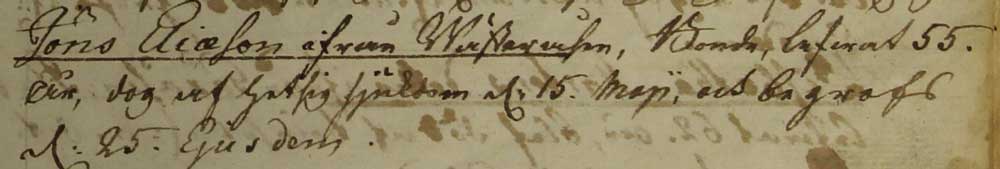 Jöns Eliæson ifrån Wästeråsen, Bonde, lefwat 55.
åhr, dog af hetsig siukdom d: 15. Maji, och begrofs
d: 25. Ejusdem.